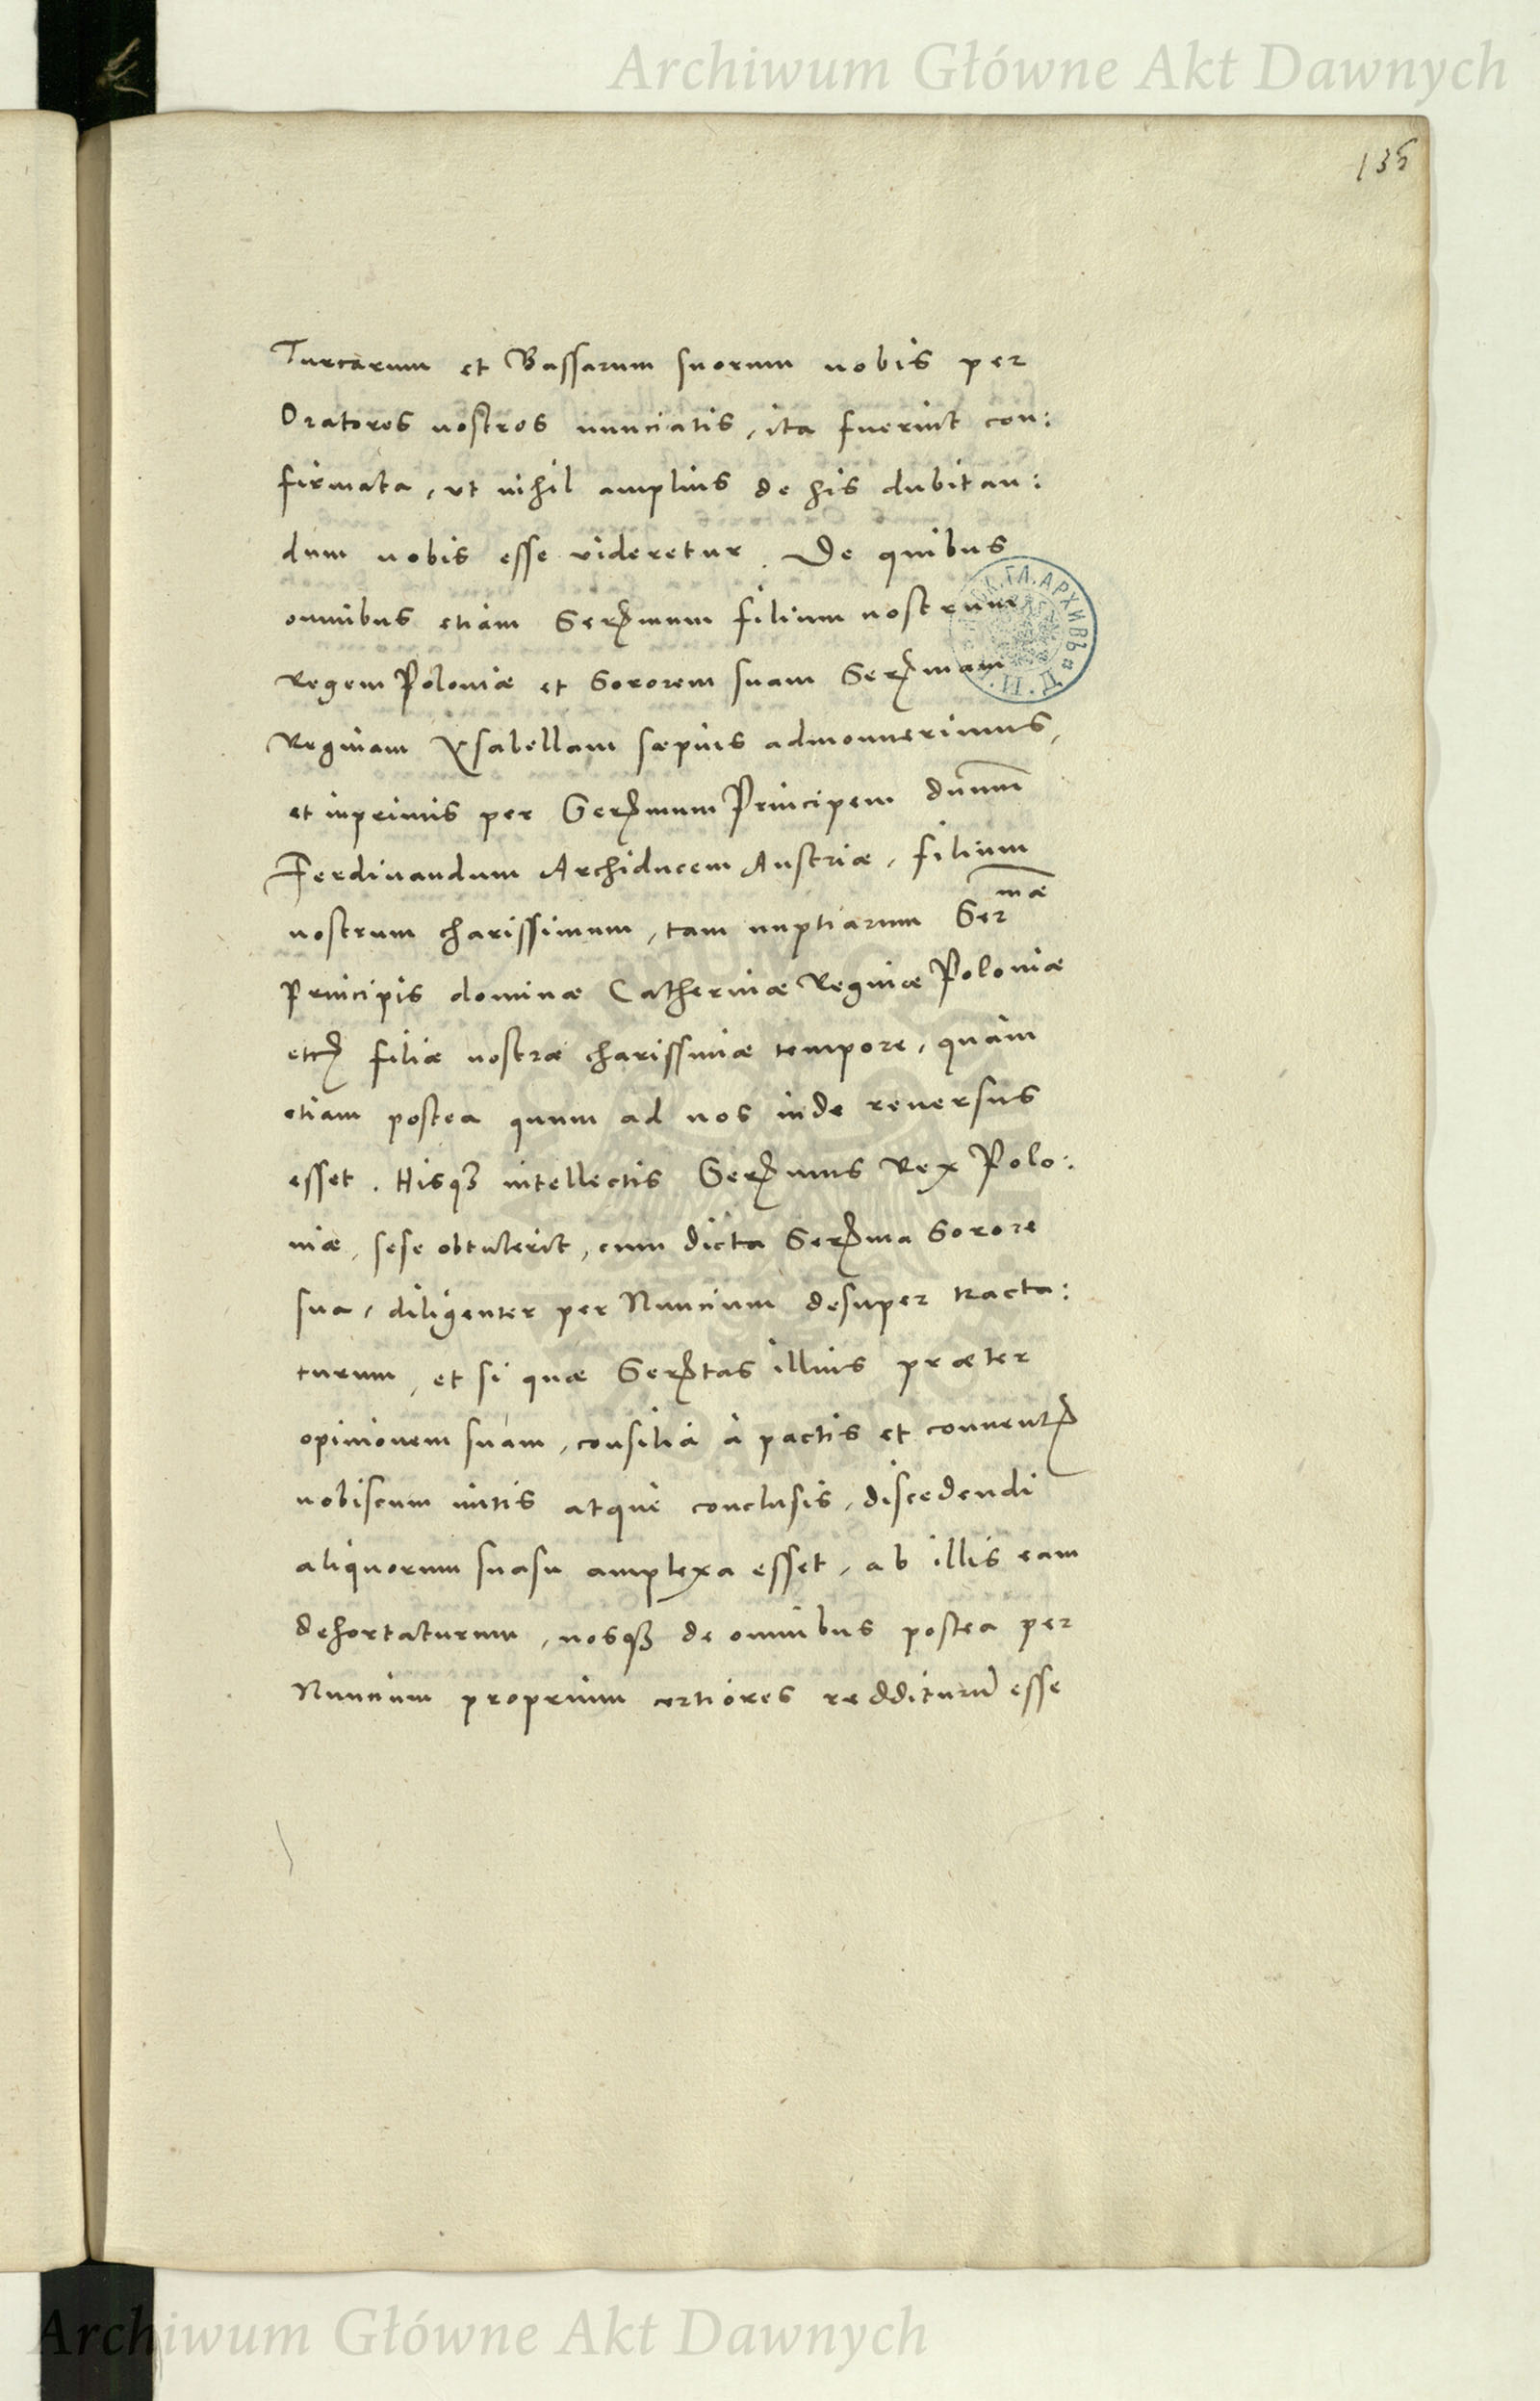 Archiwum Główne Akt Dawnych
135
Turcarum et Bassarum suorum nobis per
Oratores nostros nunciatis, ita fuerint con:
firmata, ut nihil amplius de his dubitan:
dum nobis esse videretur. De quibus
omnibus etiam Serᵐmum filium nostrum
Regem Poloniæ et Sororem suam Serᵐmam
Reginam Ysabellam sæpius admonuerimus,
et inprimis per Serᵐmum Principem dnum
Ferdinandum Archiducem Austriæ, filium
nostrum charissimum, tam nuptiarum Serᵐᵃᵉ
Principis dominæ Catherinæ Reginæ Poloniæ
etc. filiæ nostræ charissimæ tempore, quàm
etiam postea quum ad nos inde reuersus
esset. Hisqꝫ intellectis Serᵐmus Rex Polo:
niæ, sese obtulerit, cum dicta Serᵐma Sorore
sua, diligenter per Nuncium desuper tracta:
turum, et si quæ Serᵗtas illius præter
opinionem suam, consilia à pactis et conuent.
nobiscum initis atque conclusis, discedendi
aliquorum suasu amplexa esset, ab illis eam
dehortaturum, nosqꝫ de omnibus postea per
Nuncium proprium certiores redditurũ esse
АРХИВЪ
Archiwum Główne Akt Dawnych